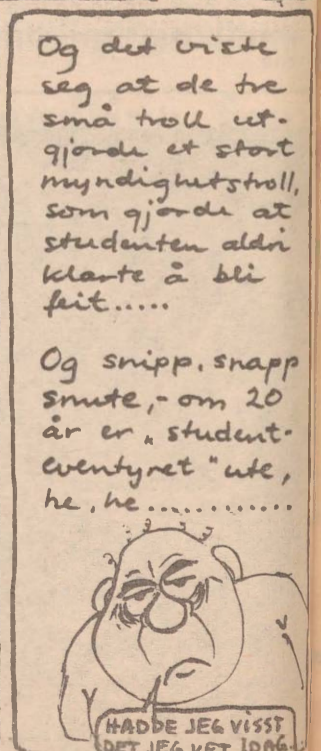 Og det viste
seg at de tre
små troll ut-
gjorde et stort
myndighetstroll,
som gjorde at
studenten aldri
klarte å bli
feit.....
Og snipp, snapp
snute,- om 20
år er „student-
eventyret" ute,
he, he............
HADDE JEG VISST
DET JEG VET IDAG